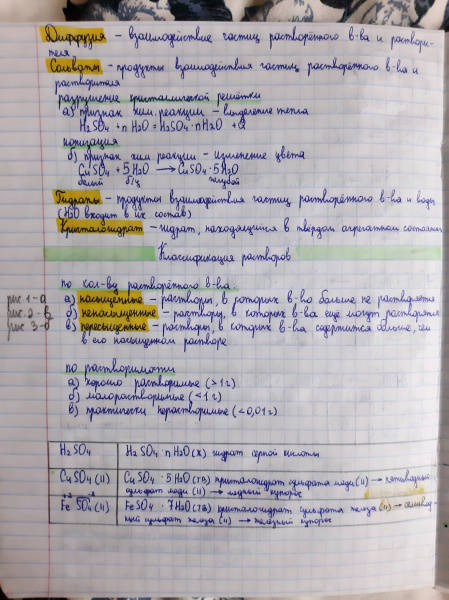 Диффузия – взаимодействие частиц растворённого в-ва и раствори-
теля
Сольваты – продукты взаимодействия частиц растворённого в-ва и
растворителя
разрушение кристаллической решётки
а) признак хим. реакции – выделение тепла
H2SO4 + n H2O = H2SO4 · n H2O + Q
ионизация
б) признак хим реакции – изменение цвета
CuSO4 + 5H2O → CuSO4 · 5H2O
белый б/ц голубой
Гидраты – продукты взаимодействия частиц растворённого в-ва и воды
(H2O входит в их состав)
Кристаллогидрат – гидрат, находящийся в твёрдом агрегатном состоянии
Классификация растворов
по кол-ву растворённого в-ва:
рис 1-а а) насыщенные – растворы, в которых в-во больше не растворяется
рис. 2- б) ненасыщенные – растворы, в которых в-ва еще могут растворятся
рис 3- в) пересыщенные – растворы, в которых в-ва содержится больше, чем
в его насыщенном растворе
по растворимости
а) хорошо растворимые (>1г)
б) малорастворимые (<1г)
в) практически нерастворимые (<0,01г)
H2SO4 H2SO4 · n H2O (ж) гидрат серной кислоты
CuSO4 (II) CuSO4 · 5H2O (тв) кристаллогидрат сульфата меди (II) →
сульфат меди (II) → медный купорос
FeSO4 (II) FeSO4 · 7H2O (тв) кристаллогидрат сульфата железа (II) →
ный сульфат железа (II) → железный купорос